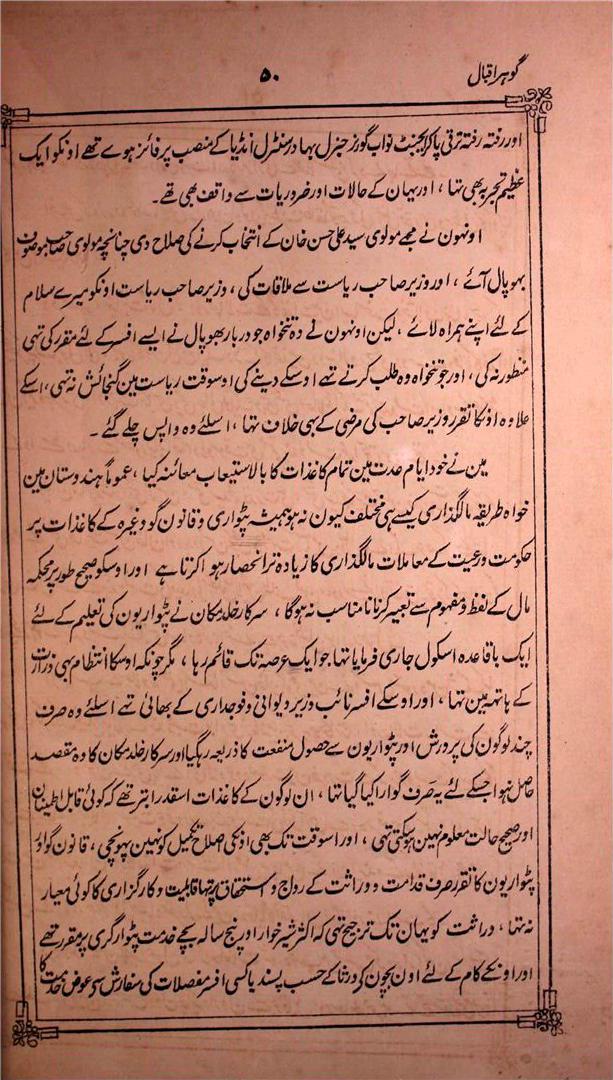 گوہر اقبال
۵۰
اور رفتہ رفتہ ترقی پاکر ایجنٹ نواب گورنر جنرل بہادر سنٹرل انڈیا کے منصب پر فائز ہوے تھے اونکو ایک
عظیم تجربہ بھی تہا ، اور یہان کے حالات اور ضروریات سے واقف بھی تھے۔
اونہون نے مجھے مولوی سید علی حسن خان کے انتخاب کرنے کی صلاح دی چنانچہ مولوی صاحب موصوف
بہوپال آئے ، اور وزیر صاحب ریاست سے ملاقات کی ، وزیر صاحب ریاست اونکو میرے سلام
کے لئے اپنے ہمراہ لائے ، لیکن اونہون نے وہ تنخواہ جو دربار بھوپال نے ایسے افسر کے لئے مقرر کی تہی
منظور نہ کی ، اور جو تنخواہ وہ طلب کرتے تھے اوسکے دینے کی اوسوقت ریاست مین گنجائش نہ تہی ، اسکے
علاوہ اونکا تقرر وزیر صاحب کی مرضی کے بہی خلاف تہا ، اسلئے وہ واپس چلے گئے ۔
مین نے خود ایام عدت مین تمام کاغذات کا بالاستیعاب معائنہ کیا ، عموماً ہندوستان مین
خواہ طریقہ مالگذاری کیسے ہی مختلف کیون نہ ہو ہمیشہ پٹواری و قانون گو وغیرہ کے کاغذات پر
حکومت و رعیت کے معاملات مالگذاری کا زیادہ تر انحصار ہوا کرتا ہے اور اوسکو صحیح طور پر محکمہ
مال کے لفظ و مفہوم سے تعبیر کرنا نامناسب نہ ہوگا ، سرکار خلد مکان نے پٹواریون کی تعلیم کے لئے
ایک باقاعدہ اسکول جاری فرمایا تہا جو ایک عرصہ تک قائم رہا ، مگر چونکہ اوسکا انتظام بہی وزارت
کے ہاتہہ مین تہا ، اور اوسکے افسر نائب وزیر دیوانی و فوجداری کے بھائی تھے اسلئے وہ صرف
چند لوگون کی پرورش اور پٹواریون سے حصول منفعت کا ذریعہ رہگیا اور سرکار خلد مکان کا وہ مقصد
حاصل نہوا جسکے لئے یہ صَرف گوارا کیا گیا تہا ، ان لوگون کے کاغذات اسقدر ابتر تھے کہ کوئی قابل اطمینان
اور صحیح حالت معلوم نہین ہوسکتی تہی ، اور اسوقت تک بھی اونکی اصلاح تکمیل کو نہین پہونچی ، قانون گو اور
پٹواریون کا تقرر صرف قدامت و وراثت کے رواج و استحقاق پر تہا قابلیت و کارگزاری کا کوئی معیار
نہ تہا ، وراثت کو یہان تک ترجیح تہی کہ اکثر شیر خوار اور پنج سالہ بچے خدمت پٹوارگری پر مقرر تھے
اور اونکے کام کے لئے اون بچون کی ورثا کے حسب پسند یا کسی افسر مفصلات کی سفارش سے عوض خدمت کا